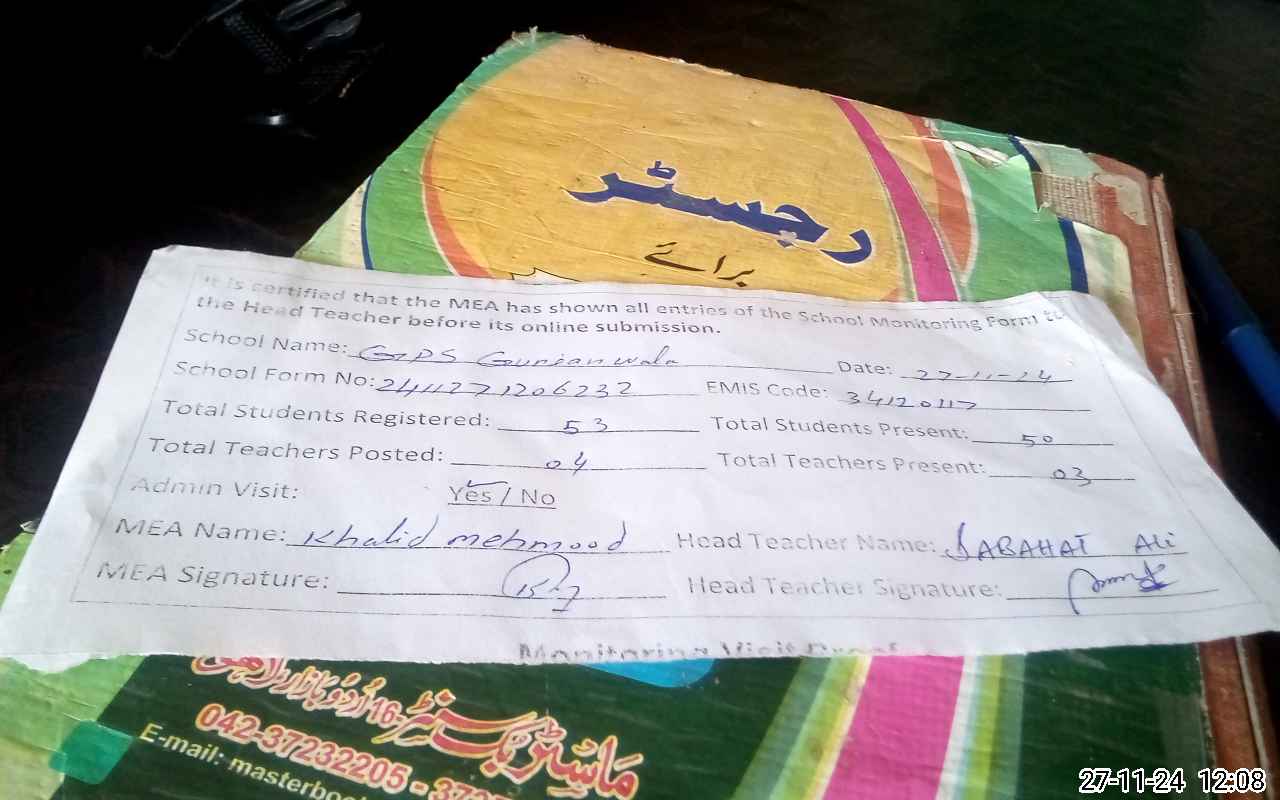 رجسٹر
برائے
It is certified that the MEA has shown all entries of the School Monitoring Form to
the Head Teacher before its online submission.
School Name: GPS Gunianwala Date: 27-11-24
School Form No: 2411271206232 EMIS Code: 34120117
Total Students Registered: 53 Total Students Present: 50
Total Teachers Posted: 04 Total Teachers Present: 03
Admin Visit: Yes / No
MEA Name: Khalid mehmood Head Teacher Name: SABAHAT Ali
MEA Signature: Head Teacher Signature:
Monitoring Visit Proof
ماسٹر بکسنٹر 16-اُردو بازار لاہور
042-37232205 - 372
E-mail: masterboo
27-11-24 12:08